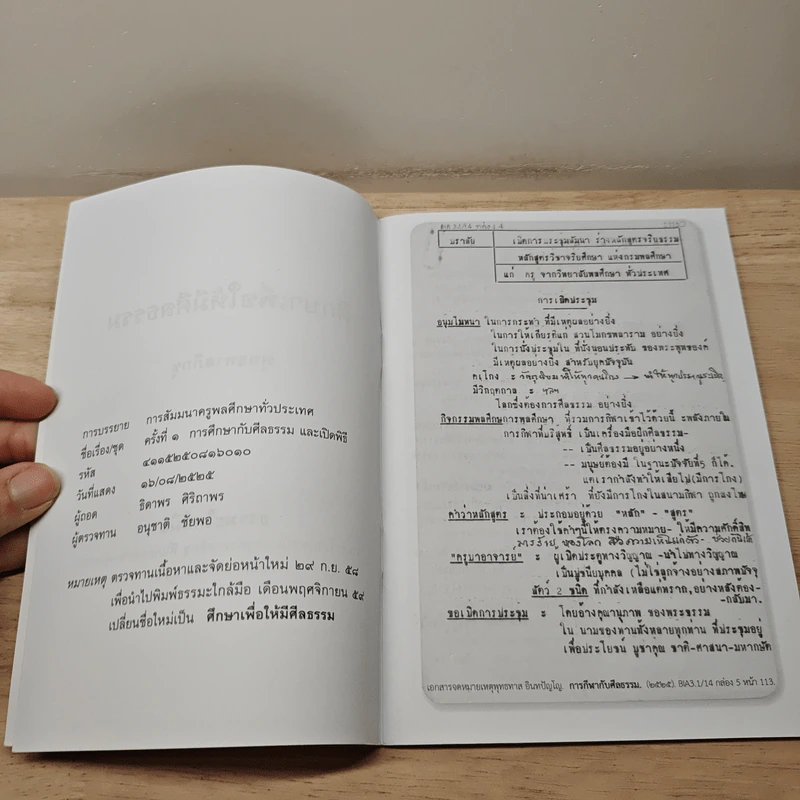 การบรรยาย การสัมมนาครูพลศึกษาทั่วประเทศ
ชื่อเรื่อง/ชุด ครั้งที่ ๑ การศึกษากับศีลธรรม และเปิดพิธี
รหัส ๔๑๑๕๒๕๐๘๑๖๐๑๐
วันที่แสดง ๑๖/๐๘/๒๕๒๕
ผู้ถอด ธิดาพร ศิริถาพร
ผู้ตรวจทาน อนุชาติ ชัยพอ
หมายเหตุ ตรวจทานเนื้อหาและจัดย่อหน้าใหม่ ๒๙ ก.ย. ๕๘
เพื่อนำไปพิมพ์ธรรมะใกล้มือ เดือนพฤศจิกายน ๕๙
เปลี่ยนชื่อใหม่เป็น ศึกษาเพื่อให้มีศีลธรรม
ปราลัย เปิดการประชุมสัมนา ร่างหลักสูตรจริยธรรม
หลักสูตรวิชาจริยศึกษา แห่งกรมพลศึกษา
แก่ ครู จากวิทยาลัยพลศึกษา ทั่วประเทศ
การเปิดประชุม
อนุมโมทนา ในการกระทำ ที่มีเหตุผลอย่างยิ่ง
ในการให้เกียรติแก่ สวนโมกขพลาราม อย่างยิ่ง
ในการนั่งประชุมใน ที่นั่งนอนประทับ ของพระพุทธองค์
มีเหตุผลอย่างยิ่ง สำหรับยุคปัจจุบัน
มีวิกฤตกาล
โลกซึ่งต้องการศีลธรรม อย่างยิ่ง
กิจกรรมพลศึกษาการพลศึกษา ที่รวมการกีฬาเข้าไว้ด้วยนี้
การกีฬาที่บริสุทธิ์ เป็นเครื่องมือฝึกศีลธรรม-
-- เป็นศีลธรรมอยู่อย่างหนึ่ง
-- มนุษย์ต้องมี ในฐานะปัจจัยที่5 ก็ได้.
แต่เรากำลังทำให้เสียไป(มีการโกง)
เป็นสิ่งที่น่าเศร้า ที่ยังมีการโกงในสนามกีฬา
คำว่าหลักสูตร = ประกอบอยู่ด้วย "หลัก" - "สูตร"
เราต้องใช้คำๆนี้ให้ตรงความหมาย- ให้มีความศักดิ์สิท
"ครูบาอาจารย์" = ผู้เปิดประตูทางวิญญาณ -นำไปทางวิญญาณ
เป็นปูชนียบุคคล (ไม่ใช่ลูกจ้างอย่างสภาพปัจจุ
สัตว์ 2 ชนิด ที่กำลังเหลือแต่ทราก,อย่างหลังต้อง-
-กลับมา.
ขอเปิดการประชุม = โดยอ้างคุณานุภาพ ของพระธรรม
ใน นามของท่านทั้งหลายทุกท่าน ที่ประชุมอยู่
เพื่อประโยชน์ บูชาคุณ ชาติ-ศาสนา-มหากษัต
เอกสารจดหมายเหตุพุทธทาส อินทปัญโญ. การกีฬากับศีลธรรม. (๒๕๒๕). BIA3.1/14 กล่อง 5 หน้า 113.